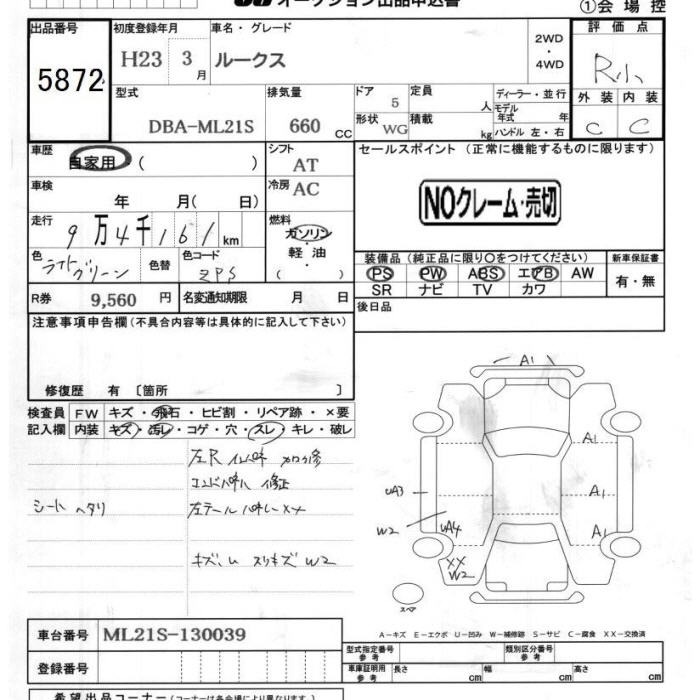 オークション出品申込書
①会場控
出品番号 初度登録年月 車名・グレード 評価点
5872 H23 3月 ルークス 2WD・4WD R小
型式 排気量 ドア 定員 ディーラー・並行 外装 内装
DBA-ML21S 660 CC 5 人 モデル年式 年 C C
形状 積載
WG kg ハンドル 左・右
車歴 シフト セールスポイント (正常に機能するものに限ります)
自家用 ( ) AT
車検 冷房
年 月( 日) AC NOクレーム・売切
走行 燃料
9万4千161km ガソリン・軽油・( )
色 色替 色コード 装備品 (純正品に限り○をつけてください) 新車保証書
ライトグリーン ZPS PS PW ABS エアB AW 有・無
SR ナビ TV カワ
R券 9,560 円 名変通知期限 月 日 後日品
注意事項申告欄 (不具合内容等は具体的に記入して下さい)
修復歴 有 〔箇所 〕
検査員 FW キズ・飛石・ヒビ割・リペア跡・×要
記入欄 内装 キズ・汚レ・コゲ・穴・スレ・キレ・破レ
左R インパネ
修正
シート ヘタリ 左テール パネルXX
キズ、スリキズ W2
A1
A1
A1
A1
UA3
W2 UA4
XX
W2
スペア
A-キズ E-エクボ U-凹み W-補修跡 S-サビ C-腐食 XX-交換済
車台番号 ML21S-130039 型式指定番号 参考 類別区分番号 参考
登録番号 車庫証明用 参考 長さ cm 幅 cm 高さ cm
希望出品コーナー (コーナーは各会場により異なります)